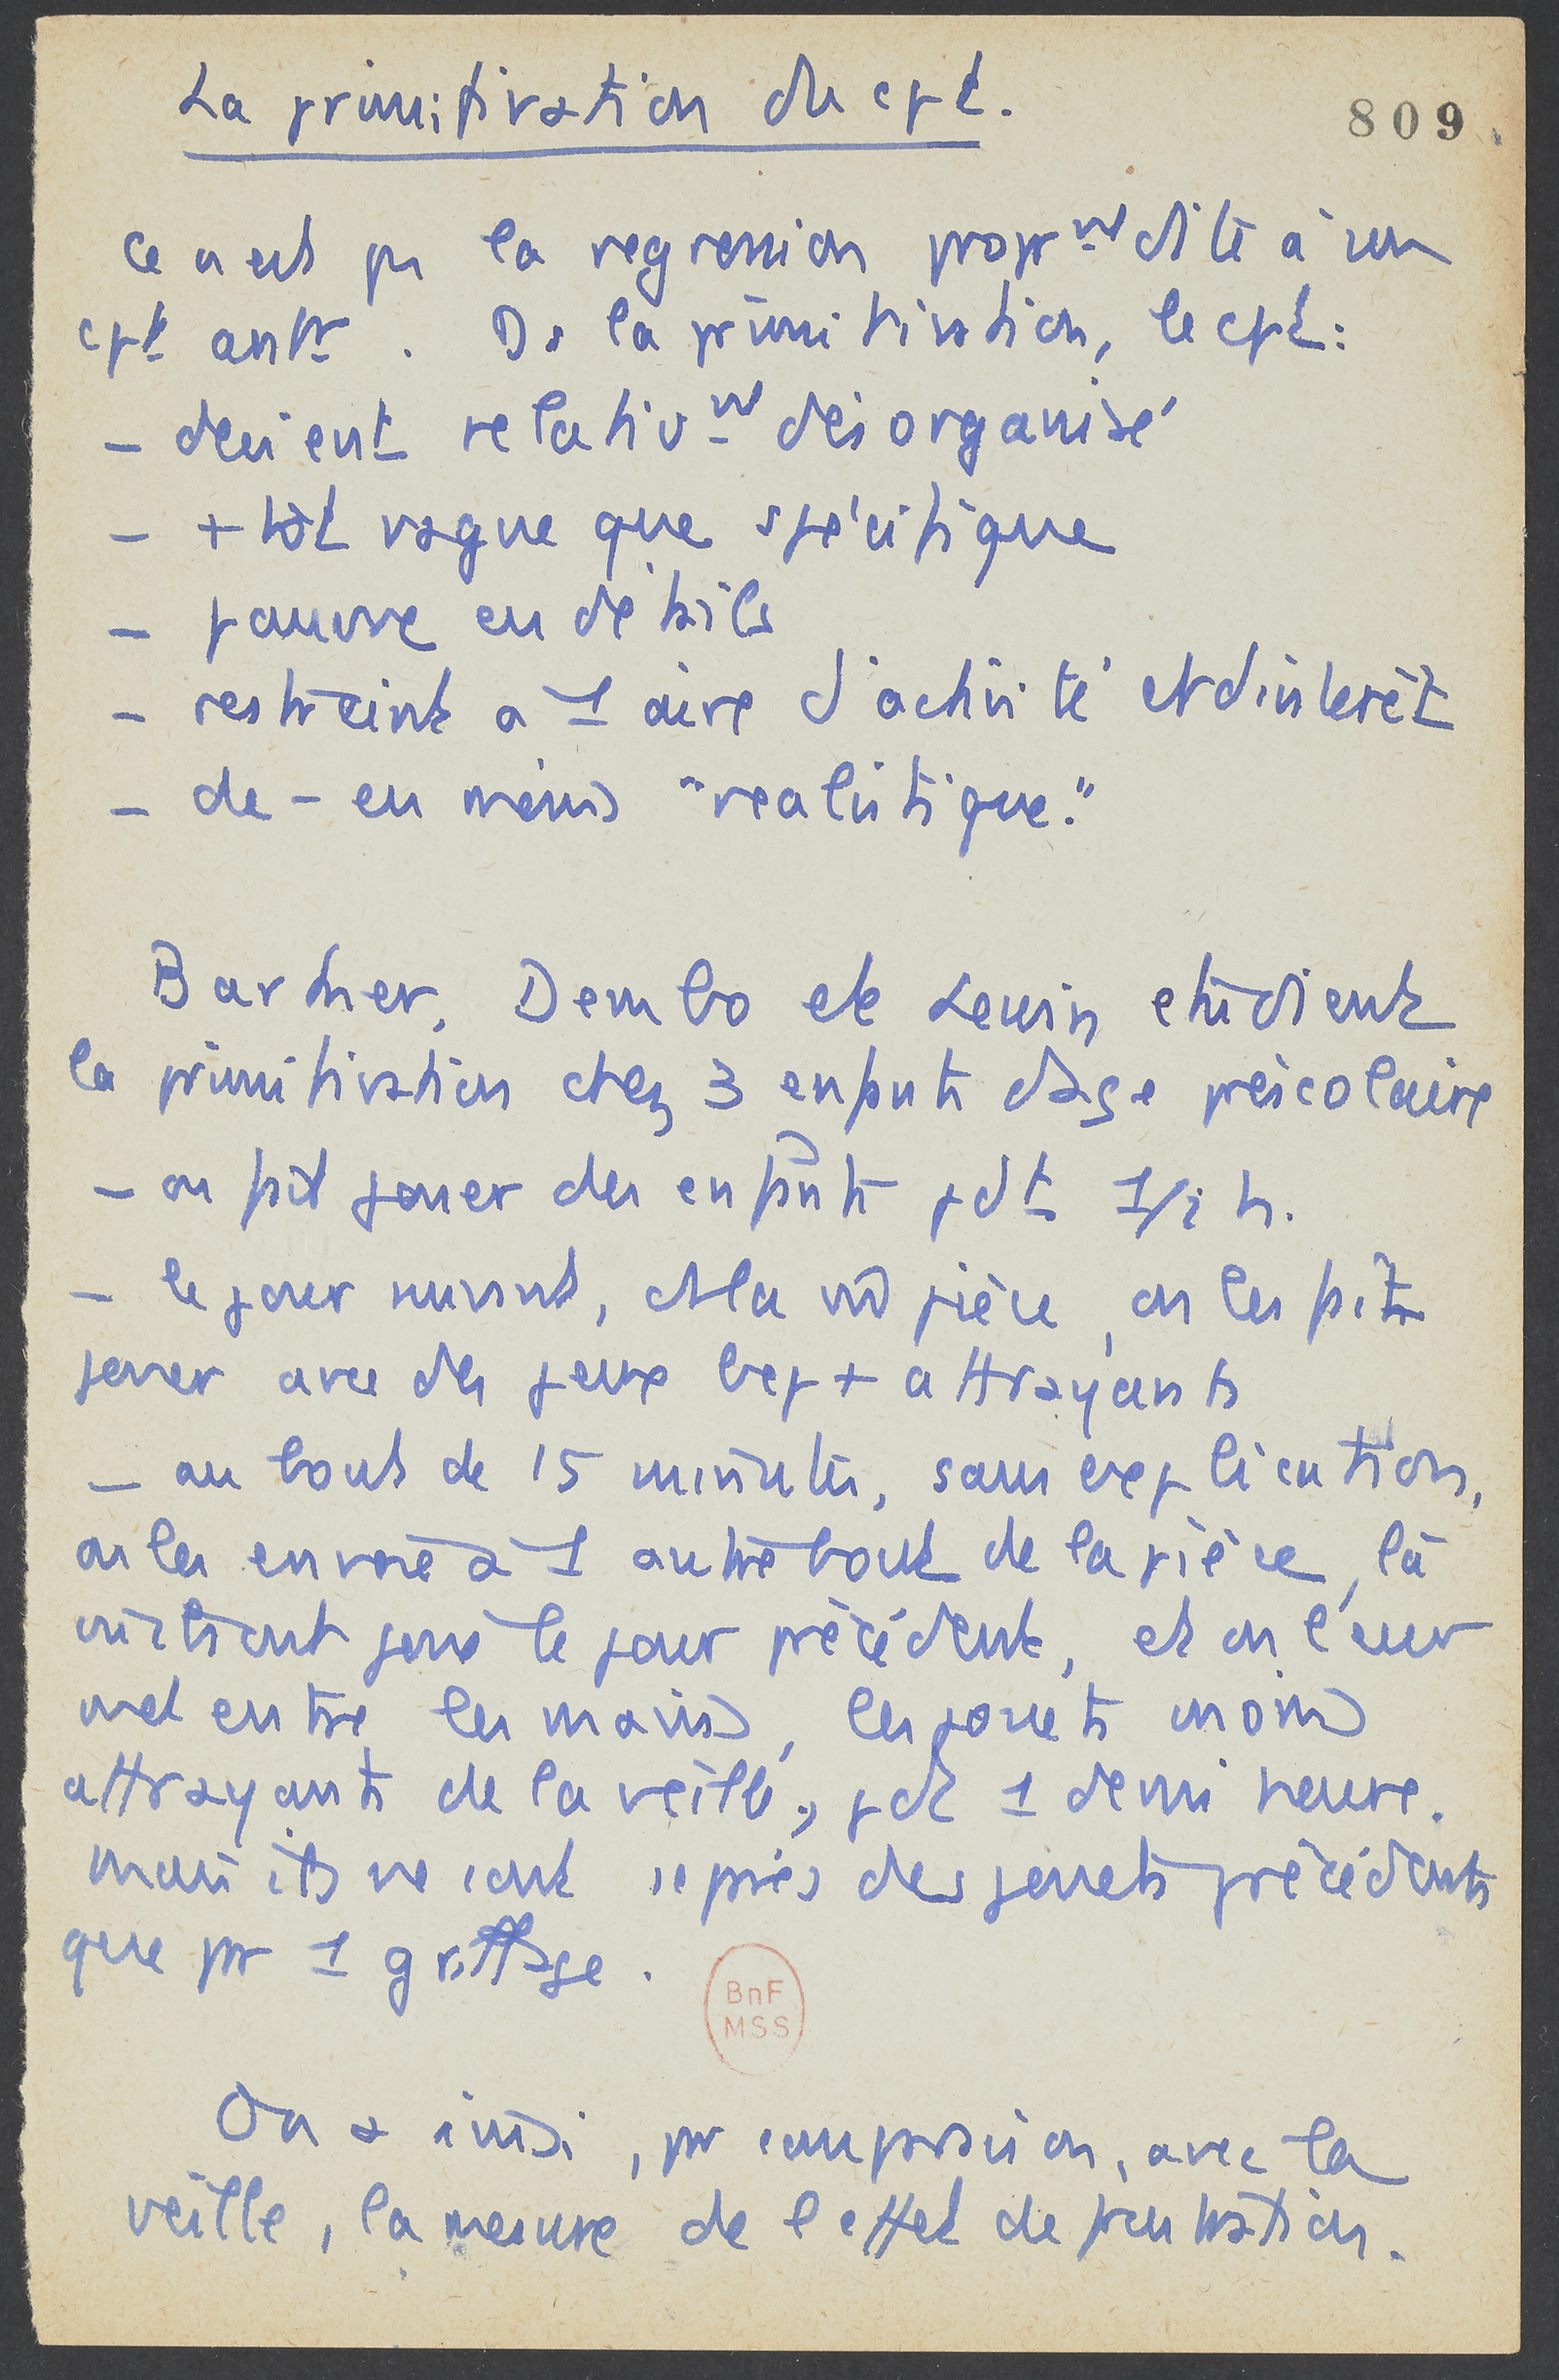 La primitivation du cpt.
809
Ce n'est pas la regression propr^nt dite à un
cpt antr. Ds la primitivation, le cpt :
- devient relativ^nt désorganisé
- + tôt vague que spécifique
- pauvre en détails
- restreint a 1 aire d'activité et d'intérêt
- de - en moins "realistique."
Barker, Dembo et Lewin etudient
la primitivation chez 3 enfants d'age préscolaire
- on fait jouer des enfants pdt 1/2 h.
- le jour suivant, ds la m̂ pièce, on les fait
jouer avec des jeux bcp + attrayants
- au bout de 15 minutes, sans explication,
on les envoie à 1 autre bout de la pièce, là
où ils ont joué le jour précédent, et on leur
met entre les mains, les jouets moins
attrayants de la veille, pdt 1 demi heure.
mais ils ne sont séparés des jouets précédents
que par 1 grillage.
BnF
MSS
On a ainsi, par comparaison, avec la
veille, la mesure de l'effet de frustration.